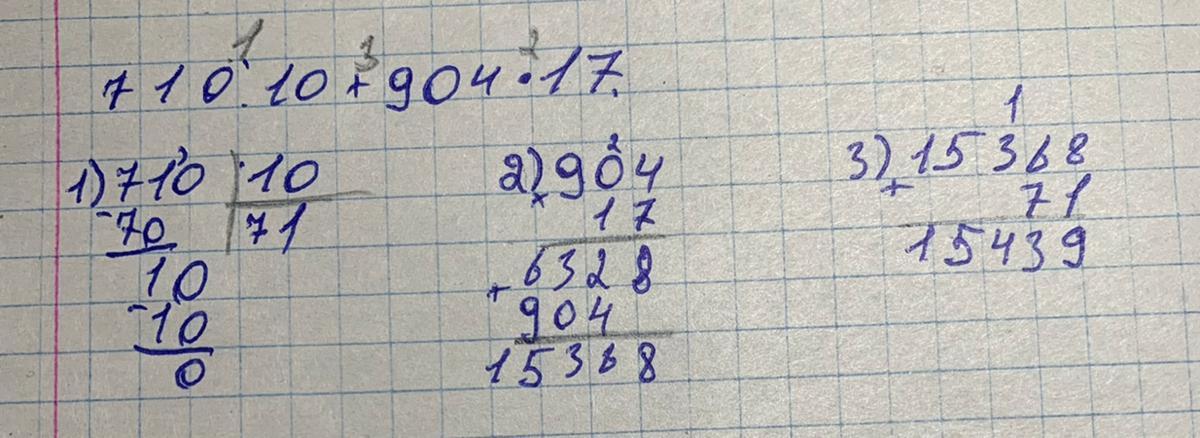 1 3 2
710:10+904·17.
1) 710 10
-70 71
10
-10
0
2) 904
2
× 17
6328
+
904
15368
1
3) 15368
+ 71
15439